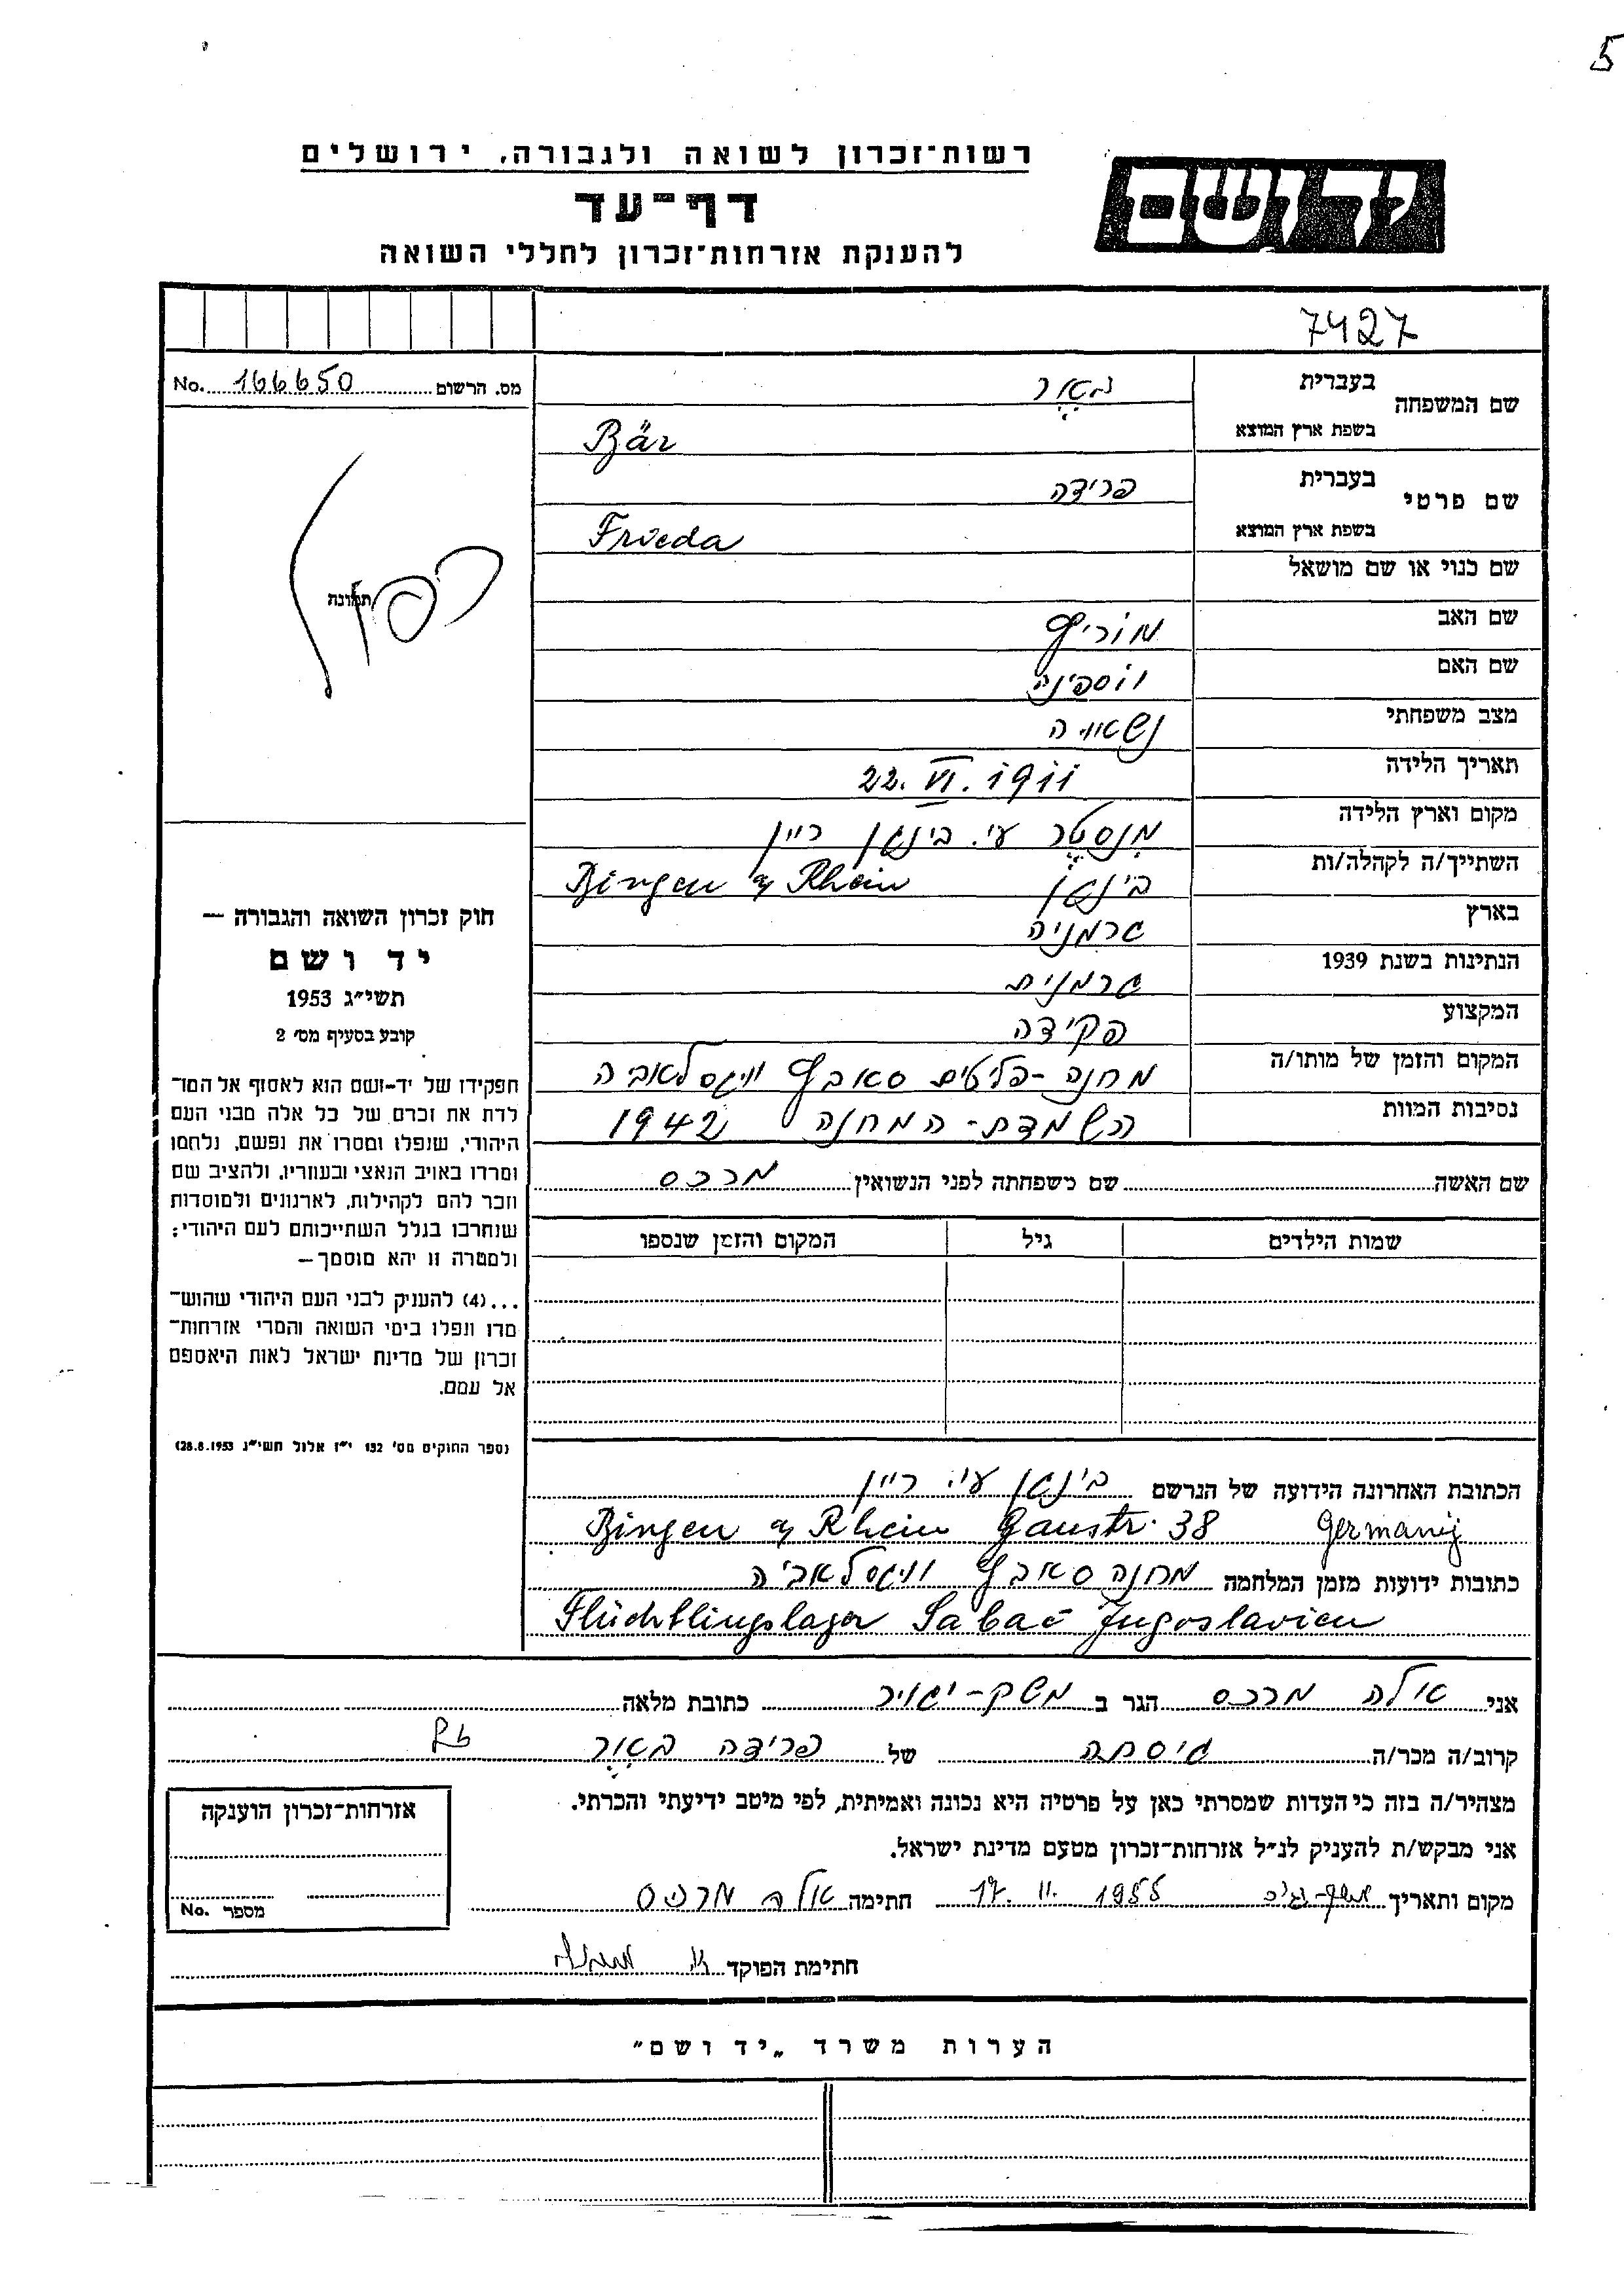 5
רשות־זכרון לשואה ולגבורה, ירושלים
יד ושם
דף־עד
להענקת אזרחות־זכרון לחללי השואה
7427
מס. הרשום 166650 No.
שם המשפחה בעברית באר
בשפת ארץ המוצא Bär
שם פרטי בעברית פרידה
בשפת ארץ המוצא Frieda
שם כנוי או שם מושאל
שם האב מוריץ
שם האם יוספינה
מצב משפחתי נשואה
תאריך הלידה 22. VI. 1911
מקום וארץ הלידה מנסטר ע״י. בינגן ריין
השתייך/ה לקהלה/ות בינגן Bingen a/ Rhein
בארץ גרמניה
הנתינות בשנת 1939 גרמנית
המקצוע פקידה
המקום והזמן של מותו/ה מחנה-פליטים סאבץ יוגוסלאביה
נסיבות המוות השמדת-המחנה 1942
שם האשה שם משפחתה לפני הנשואין מרכס
שמות הילדים גיל המקום והזמן שנספו
תמונה
חוק זכרון השואה והגבורה —
יד ושם
תשי״ג 1953
קובע בסעיף מס׳ 2
תפקידו של יד-ושם הוא לאסוף אל המו־
לדת את זכרם של כל אלה מבני העם
היהודי, שנפלו ומסרו את נפשם, נלחמו
ומרדו באויב הנאצי ובעוזריו, ולהציב שם
וזכר להם לקהילות, לארגונים ולמוסדות
שנחרבו בגלל השתייכותם לעם היהודי;
ולמטרה זו יהא מוסמך —
...(4) להעניק לבני העם היהודי שהוש־
מדו ונפלו בימי השואה והמרי אזרחות־
זכרון של מדינת ישראל לאות היאספם
אל עמם.
(ספר החוקים מס׳ 132 י״ז אלול תשי״ג 28.8.1953)
הכתובת האחרונה הידועה של הנרשם בינגן ע״י ריין
Bingen a/ Rhein Gaustr. 38 Germanij
כתובות ידועות מזמן המלחמה מחנה סאבץ יוגוסלאביה
Flüchtlingslager Sabac Jugoslavien
אני אלה מרכס הגר ב משק-יגור כתובת מלאה
קרוב/ה מכר/ה גיסתה של פרידה באר
מצהיר/ה בזה כי העדות שמסרתי כאן על פרטיה היא נכונה ואמיתית, לפי מיטב ידיעתי והכרתי.
אני מבקש/ת להעניק לנ״ל אזרחות־זכרון מטעם מדינת ישראל.
מקום ותאריך 17. II. 1955 חתימה אלה מרכס
חתימת הפוקד
אזרחות־זכרון הוענקה
מספר No.
הערות משרד „יד ושם״